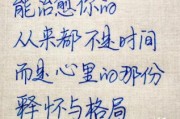 能治愈你的
从来都不是时间
而是心里的那份
释怀与格局